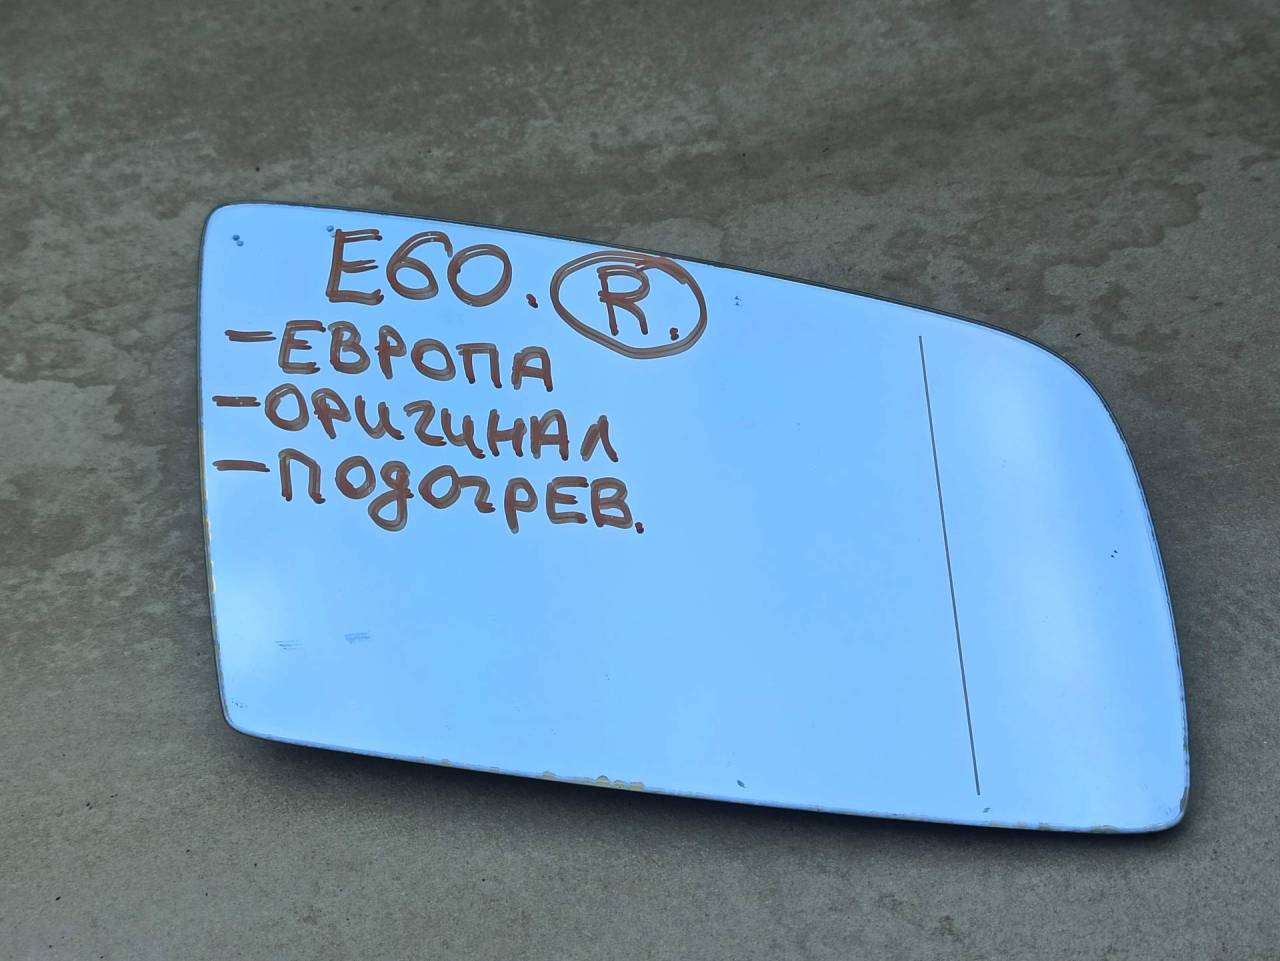 E60. R.
-ЕВРОПА
-ОРИГИНАЛ
-ПОДОГРЕВ.